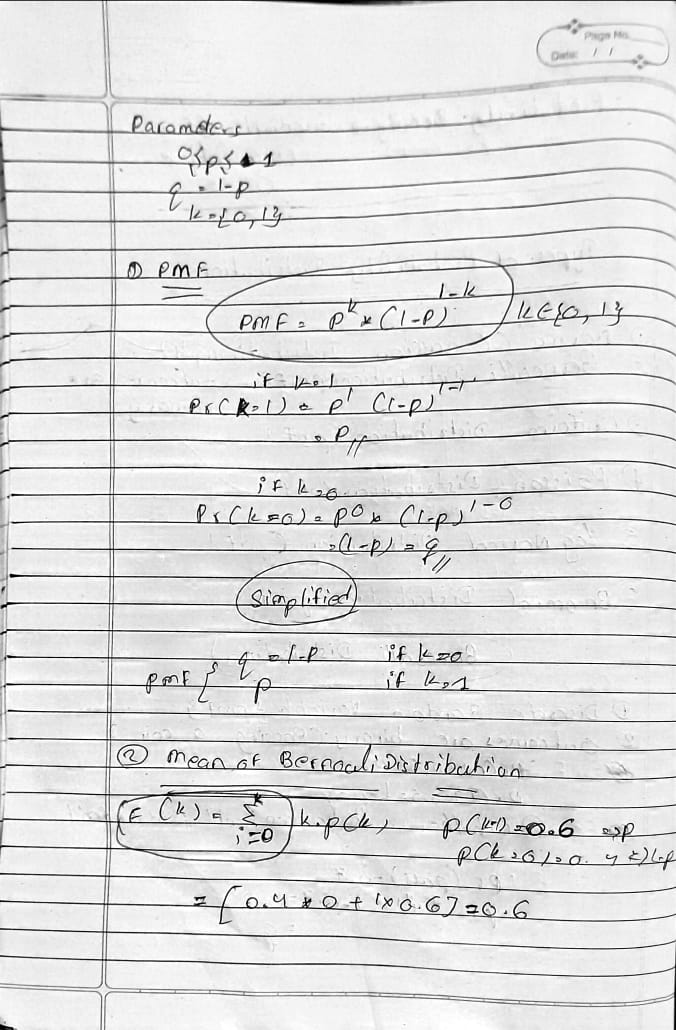 Page No.
Date: / /
Parameters
0 ≤ p ≤ 1
q = 1-p
k = {0, 1}
① PMF
PMF = p^k * (1-p)^1-k k ∈ {0, 1}
if k=1
Pr(k=1) = p^1 (1-p)^1-1
= p //
if k=0
Pr(k=0) = p^0 * (1-p)^1-0
= (1-p) = q //
Simplified
PMF { q = 1-p if k=0
p if k=1
② mean of Bernoouli Distribution
E (k) = Σ^k i=0 k.p(k) p(k=1) = 0.6 => p
p(k=0) = 0.4 => 1-p
= [0.4 * 0 + 1 x 0.6] = 0.6